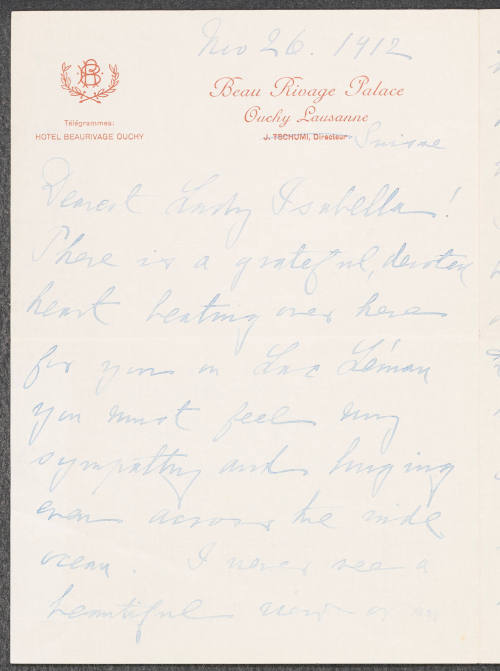 Nov 26. 1912
BR
Beau Rivage Palace
Ouchy Lausanne
Télégrammes:
HOTEL BEAURIVAGE OUCHY
J. TSCHUMI, Directeur Suisse
Dearest Lady Isabella!
There is a grateful, devoted
heart beating over here
for you on Lac Léman
you must feel my
sympathy and longing
even across the wide
ocean. I never see a
beautiful view or